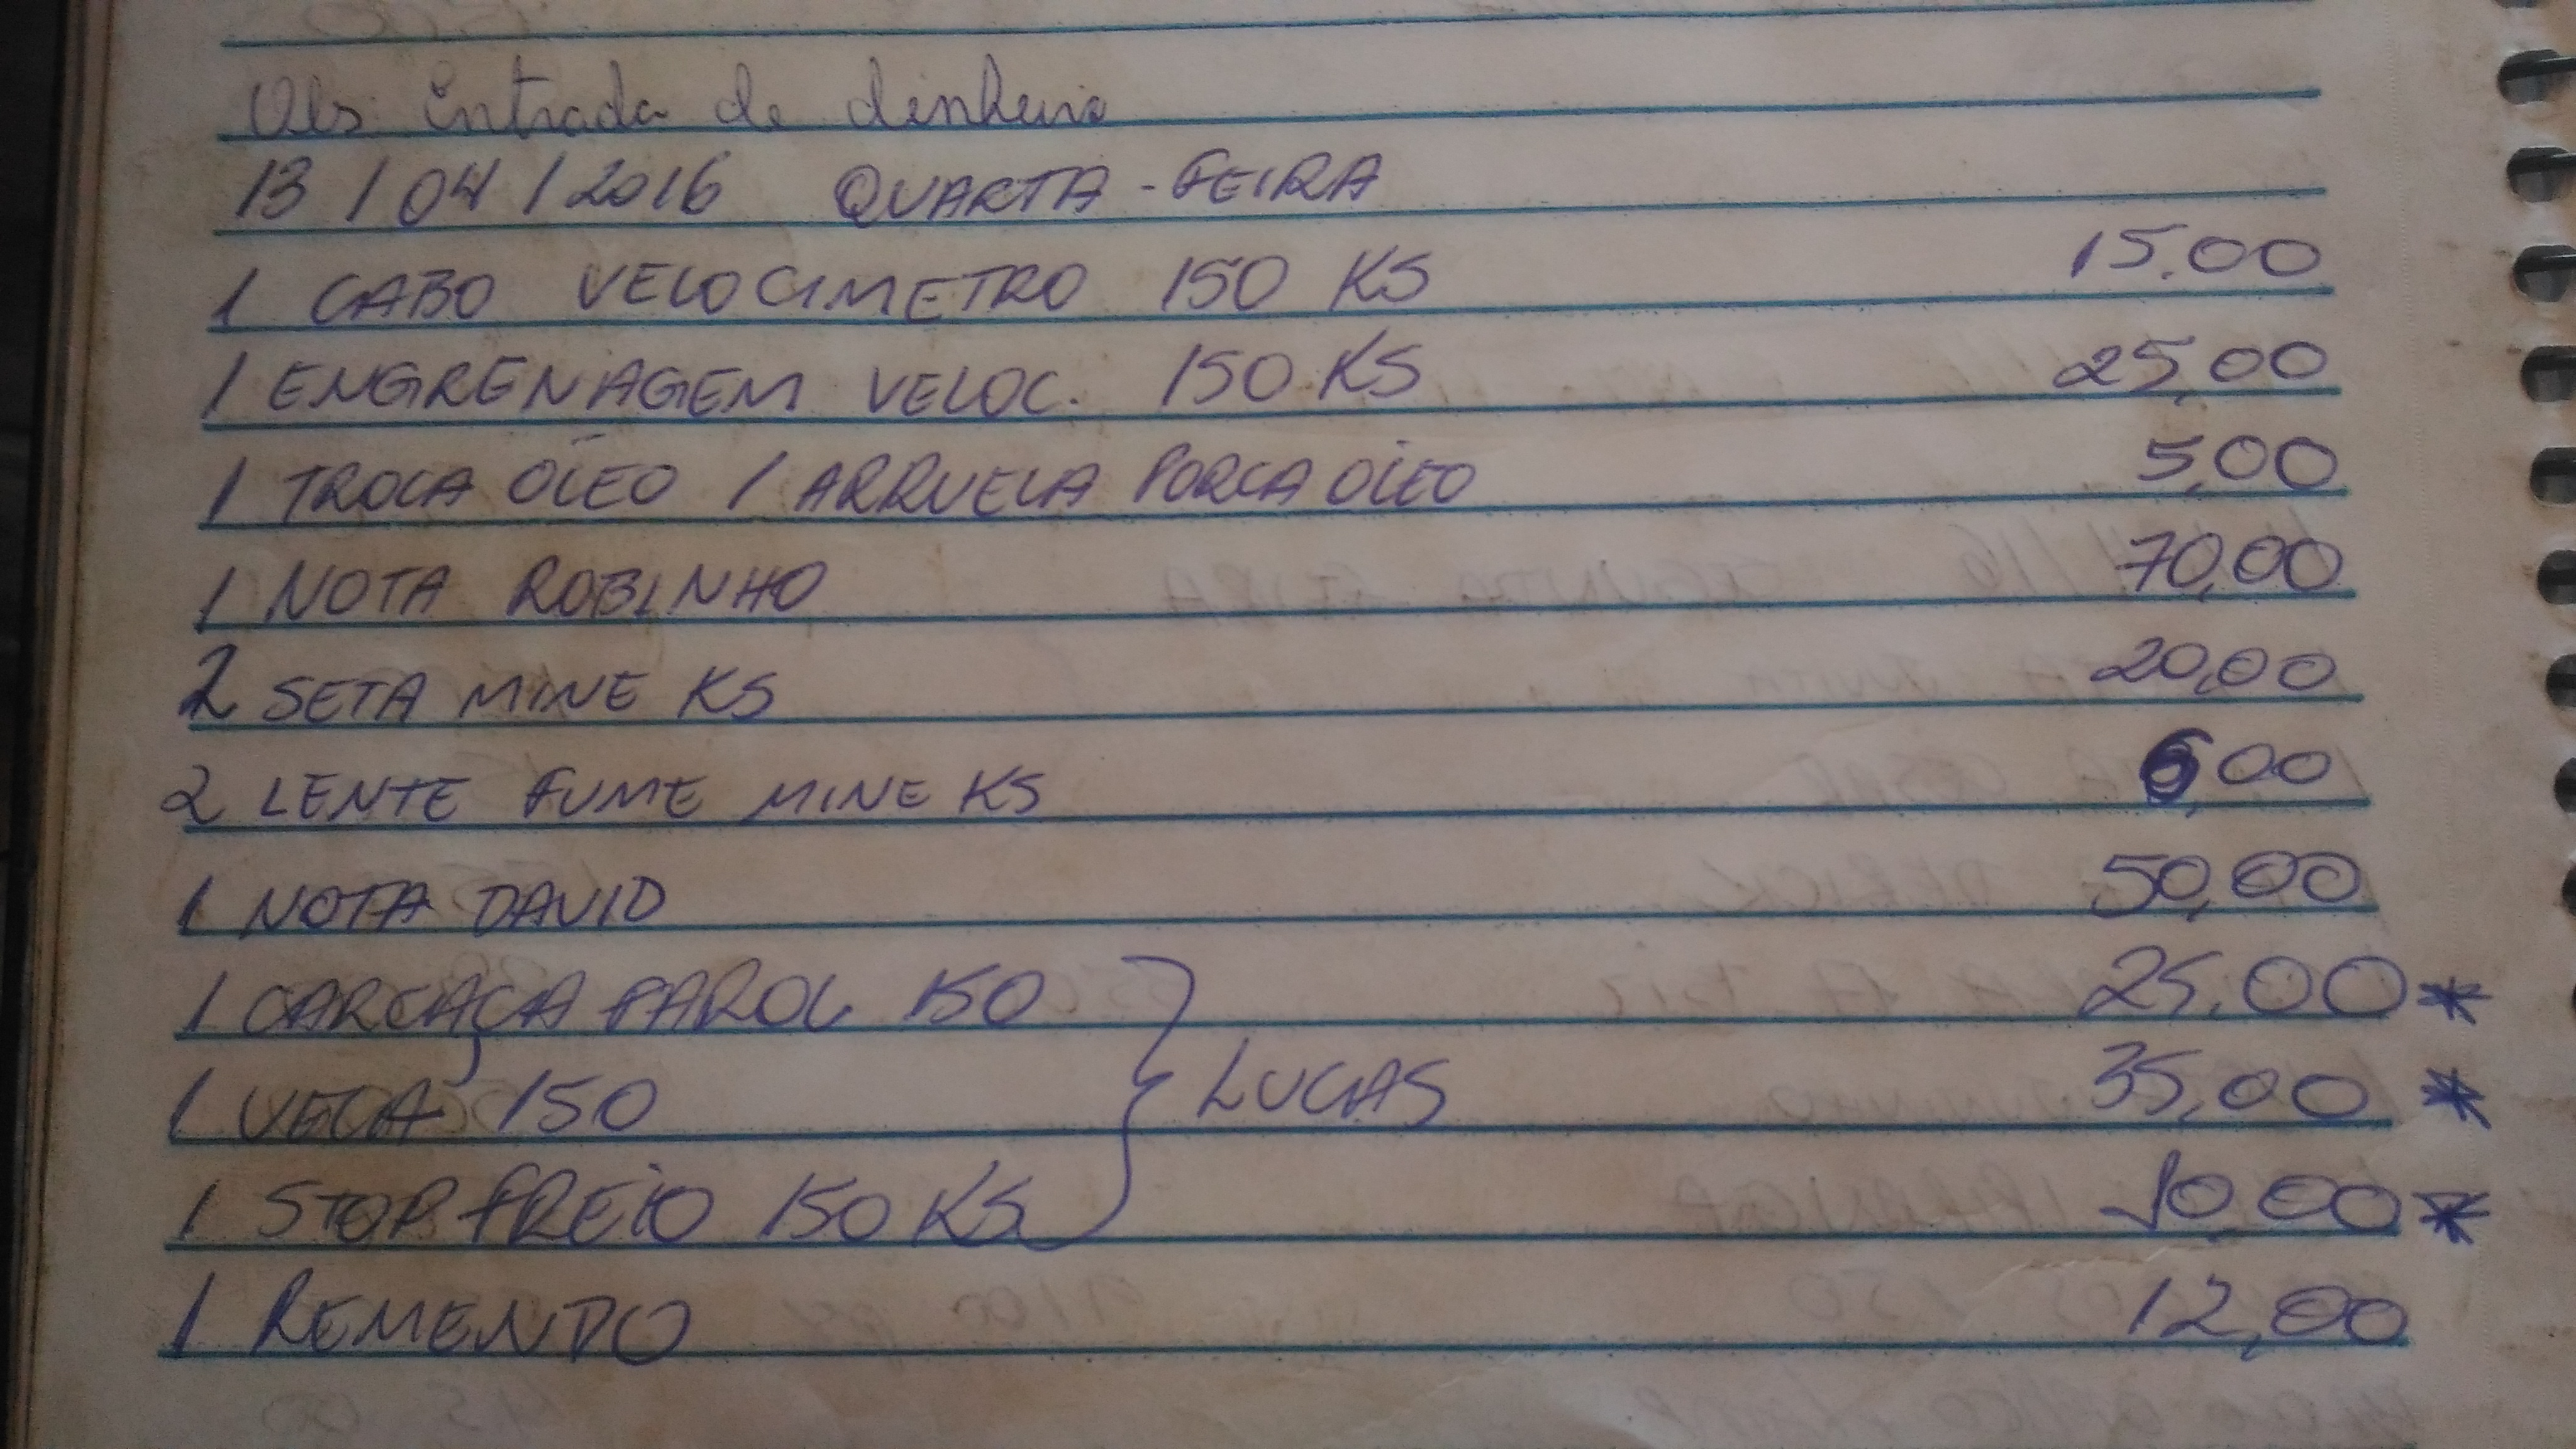 Obs Entrada de dinheiro
13/04/2016 QUARTA-FEIRA
1 CABO VELOCIMETRO 150 KS 15.00
1 ENGRENAGEM VELOC. 150 KS 25,00
1 TROCA ÓLEO / ARRUELA PORCA ÓLEO 5,00
1 NOTA ROBINHO 70,00
2 SETA MINE KS 20,00
2 LENTE FUME MINE KS 6,00
1 NOTA DAVID 50,00
1 CARCAÇA FAROL 150 25,00 *
1 VELA 150 LUCAS 35,00 *
1 STOP FREIO 150 KS 10,00 *
1 REMENDO 12,00